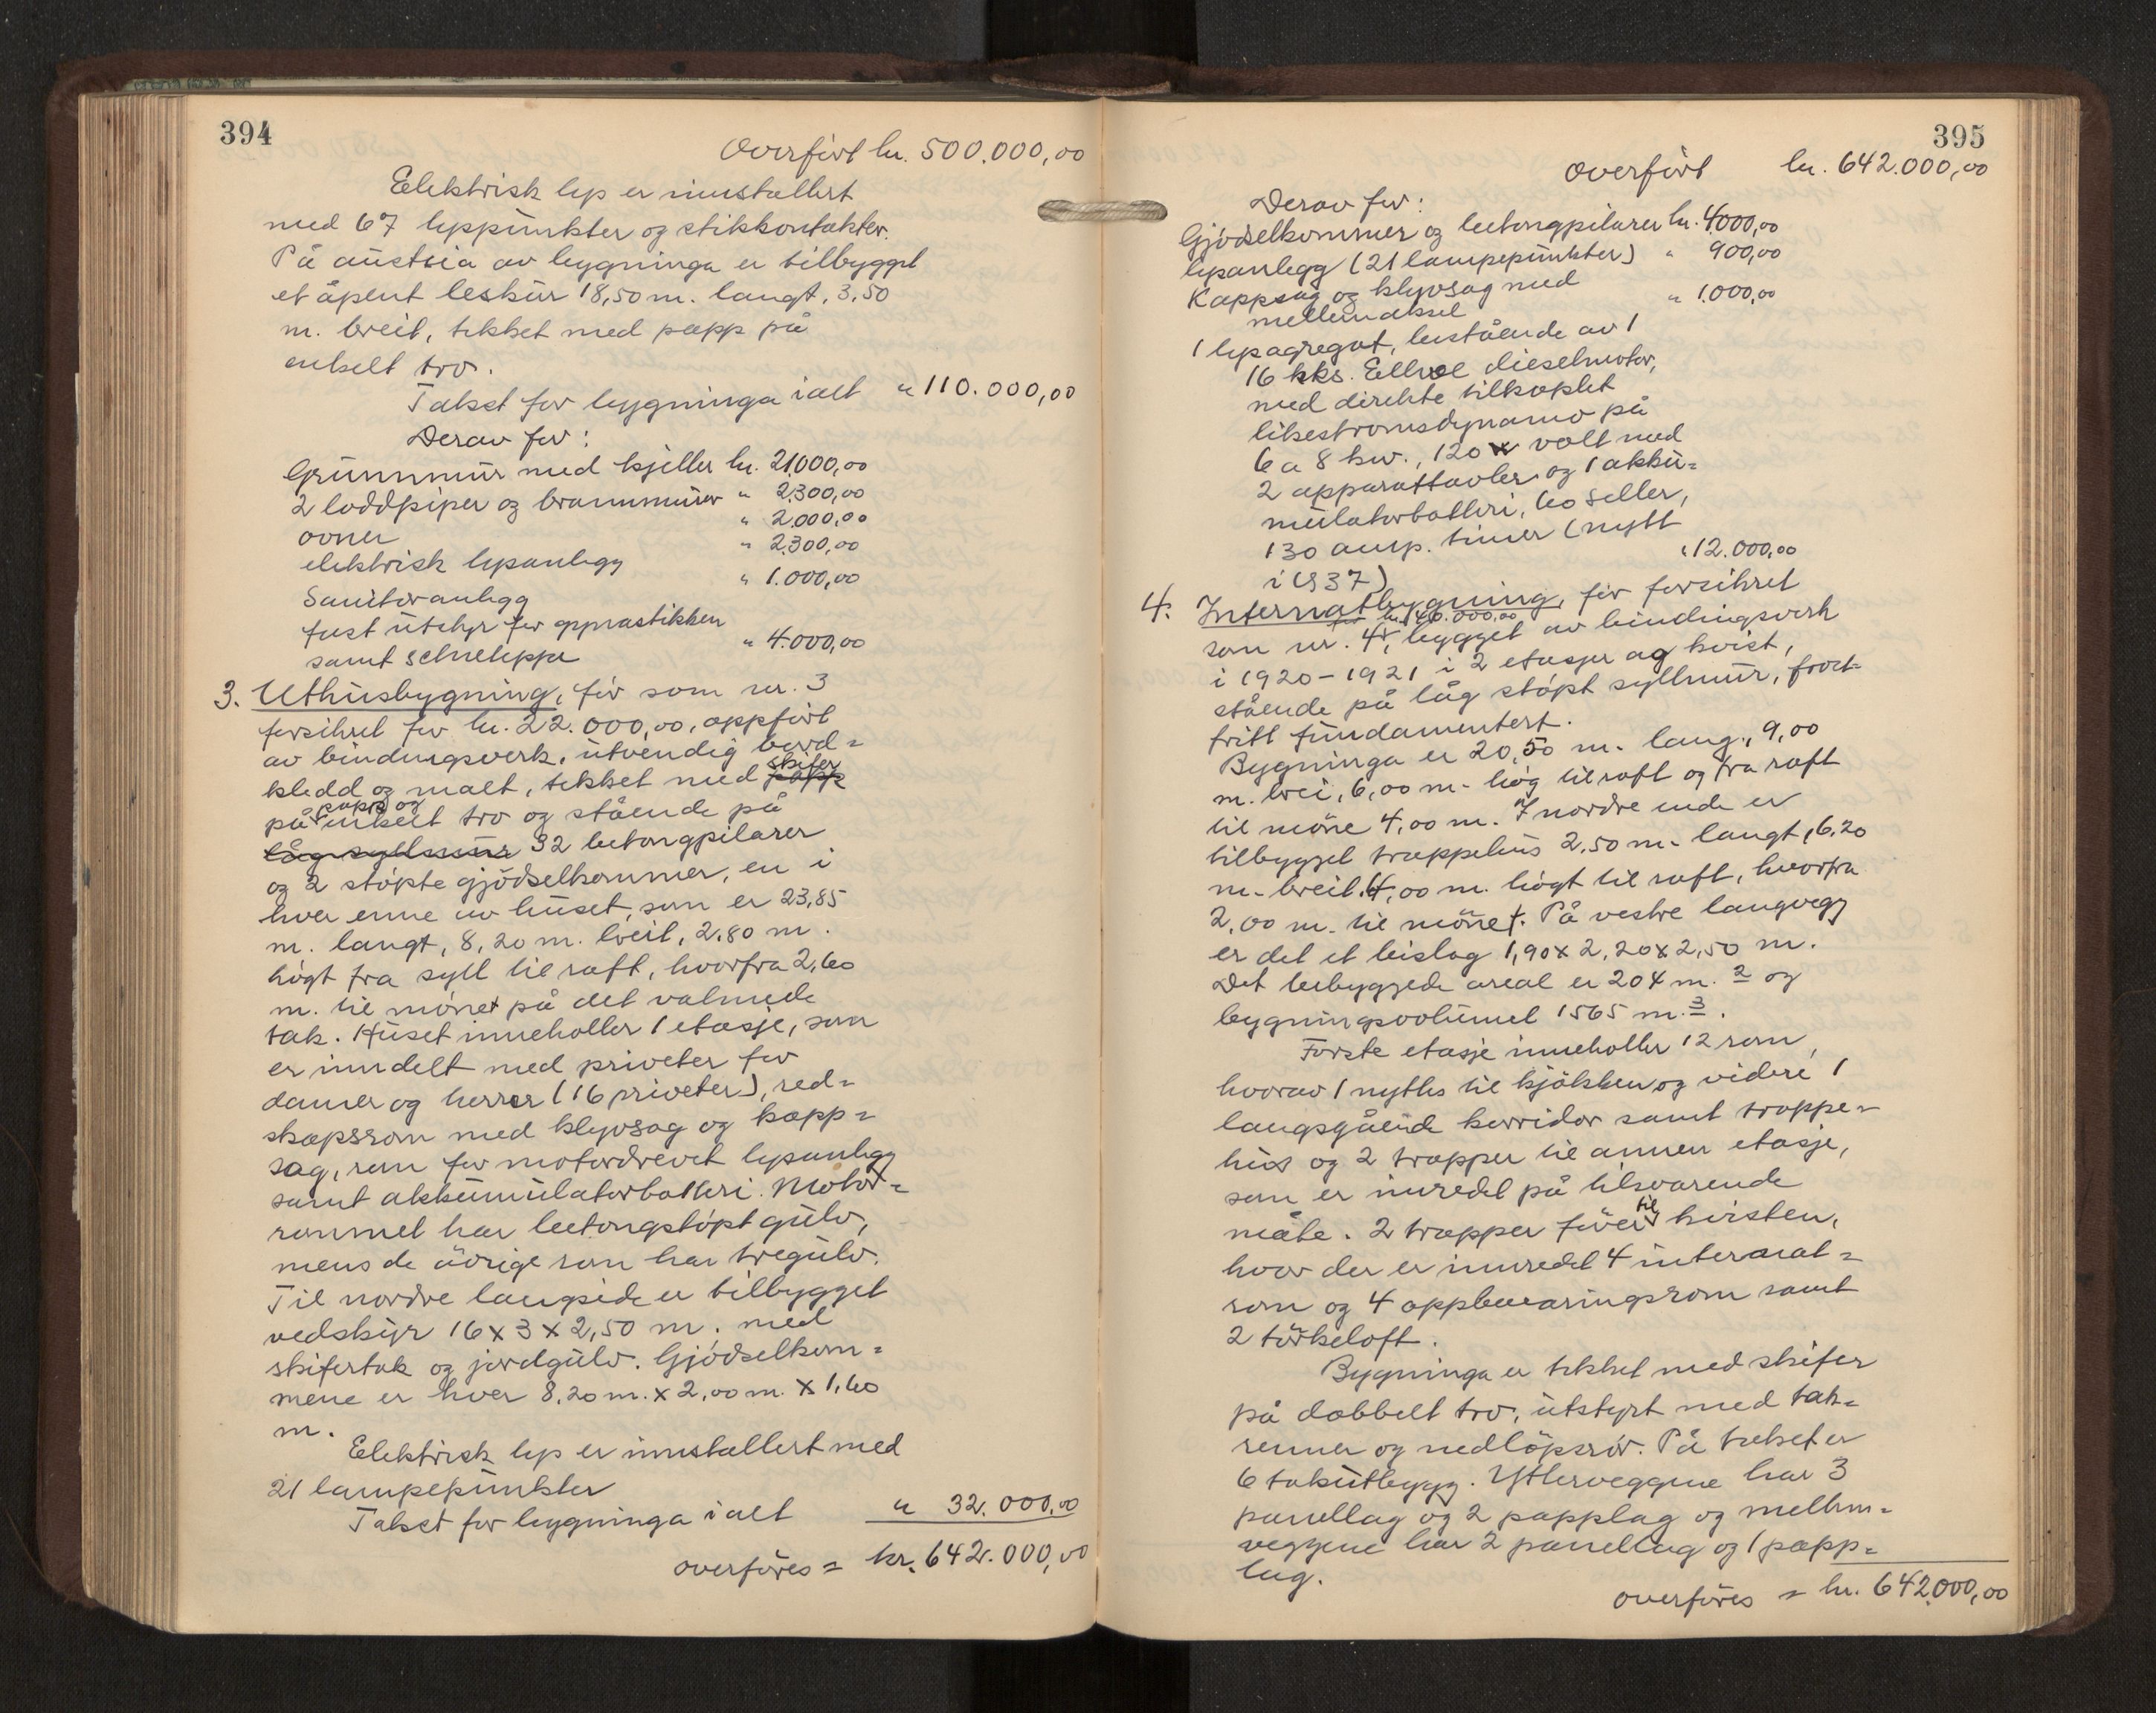 394
Overført kr. 500.000,00
Elektrisk lys er innstallert
med 67 lyspunkter og stikkontakter.
På austsia av bygninga er tilbygget
et åpent leskur 18,50 m. langt, 3,50
m. breit, tekket med papp på
enkelt tro.
Takst for bygninga ialt " 110.000,00
Derav for:
Grunnmur med kjeller kr. 21000,00
2 loddpiper og brannmurer " 2.300,00
ovner " 2.000,00
elektrisk lysanlegg " 2.300,00
Sanitæranlegg " 1.000,00
fast utstyr for gymnastikken
samt scheneteppe " 4.000,00
3. Uthusbygning, før som nr. 3
forsikret for kr. 22.000,00, oppført
av bindingsverk, utvendig bord=
kledd og malt, tekket med papp skifer
på papp og enkelt tro og stående på
låg syllmur 32 betongpilarer
og 2 støpte gjødselkommer, en i
hver enne av huset, som er 23,85
m. langt, 8,20 m. breit, 2.80 m.
høgt fra syll til raft, hvorfra 2,60
m. til mønet på det valmede
tak. Huset inneholler 1 etasje, som
er inndelt med priveter for
damer og herrer (16 priveter), red=
skapsrom med klyvsag og kapp=
sag, rom for motordrevet lysanlegg
samt akkumulatorbatteri. Motor=
rommet har betongstøpt gulv,
mens de øvrige rom har tregulv.
Til nordre langside er tilbygget
vedskjur 16 x 3 x 2,50 m. med
skifertak og jordgulv. Gjødselkom=
mene er hver 8,20 m. x 2,00 m. x 1,60
m.
Elektrisk lys er innstallert med
21 lampepunkter
Takst for bygninga ialt " 32.000,00
overføres = kr. 642.000,00
395
Overført kr. 642.000,00
Derav for:
Gjødselkommer og betongpilarer kr. 4000,00
lysanlegg (21 lampepunkter) " 900,00
Kappsag og klyvsag med
mellemaksel " 1.000,00
1 lysagregat, bestående av 1
16 hks. Ellwe dieselmotor,
med direkte tilkoplet
likestromsdynamo på
6 a 8 kw., 120 volt med
2 apparattavler og 1 akku=
mulatorbatteri, 60 seller,
130 amp. timer (nytt
i 1937) " 12.000,00
4. Internatbygning, før forsikret
som nr. 4, for kr. 140.000,00 bygget av bindingsverk
i 1920-1921 i 2 etasjer og kvist,
stående på låg støpt syllmur, frost=
fritt fundamentert.
Bygninga er 20,50 m. lang, 9,00
m. brei, 6,00 m. høg til raft og fra raft
til møne 4,00 m. I nordre ende er
tilbygget trappehus 2.50 m. langt, 6,20
m. breit, 4,00 m. høgt til raft, hvorfra
2,00 m. til mønet. På vestre langvegg
er det et bislag 1,90 x 2,20 x 2,50 m.
Det bebyggede areal er 204 m.2 og
bygningsvolumet 1565 m.3.
Første etasje inneholler 12 rom,
hvorav 1 nyttes til kjøkken og videre 1
langsgående korridor samt trappe=
hus og 2 trapper til annen etasje,
som er innredet på tilsvarende
måte. 2 trapper fører til kvisten,
hvor der er innredet 4 internat=
rom og 4 oppbevaringsrom samt
2 tørkeloft.
Bygninga er tekket med skifer
på dobbelt tro, utstyrt med tak=
renner og nedløpsrør. På taket er
6 takutbygg. Ytterveggene har 3
panellag og 2 papplag og mellem=
veggene har 2 panellag og 1 papp=
lag.
overføres = kr. 642.000,00